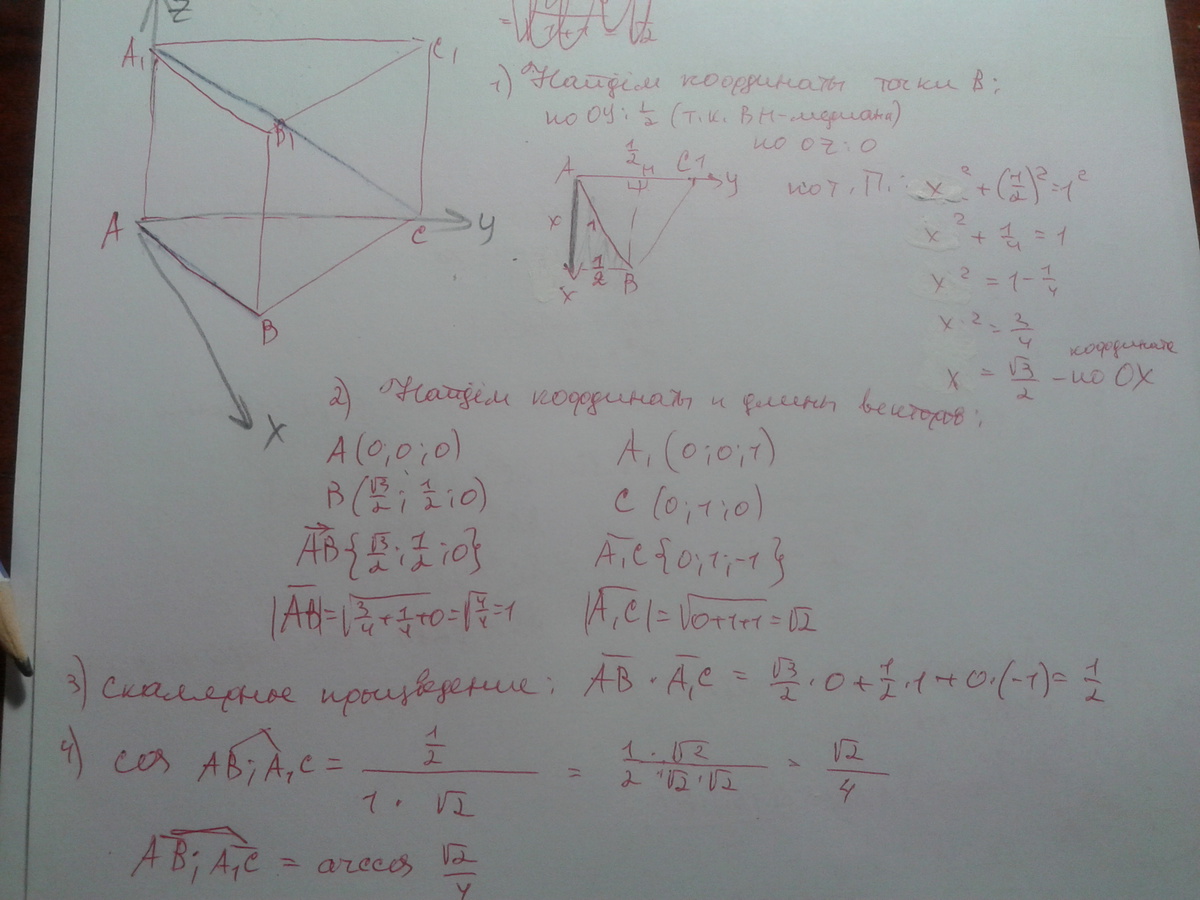 Z
A₁
C₁
B₁
A
C
y
B
X
1) Найдём координаты точки B:
по OY: 1/2 (т.к. BH-медиана)
по OZ: 0
1/2
A
H
C
1
y
x
1
1/2
B
x
по т. П.: x² + (1/2)² = 1²
x² + 1/4 = 1
x² = 1 - 1/4
x² = 3/4
x = √3/2 - координата по OX
2) Найдём координаты и длины векторов:
A (0; 0; 0) A₁ (0; 0; 1)
B (√3/2; 1/2; 0) C (0; 1; 0)
AB {√3/2; 1/2; 0} A₁C {0; 1; -1}
|AB| = √(3/4 + 1/4 + 0) = √(4/4) = 1 |A₁C| = √(0+1+1) = √2
3) Скалярное произведение: AB · A₁C = √3/2 · 0 + 1/2 · 1 + 0 · (-1) = 1/2
4) cos AB; A₁C = (1/2)/(1 · √2) = (1 · √2)/(2 · √2 · √2) = √2/4
AB; A₁C = arccos √2/4